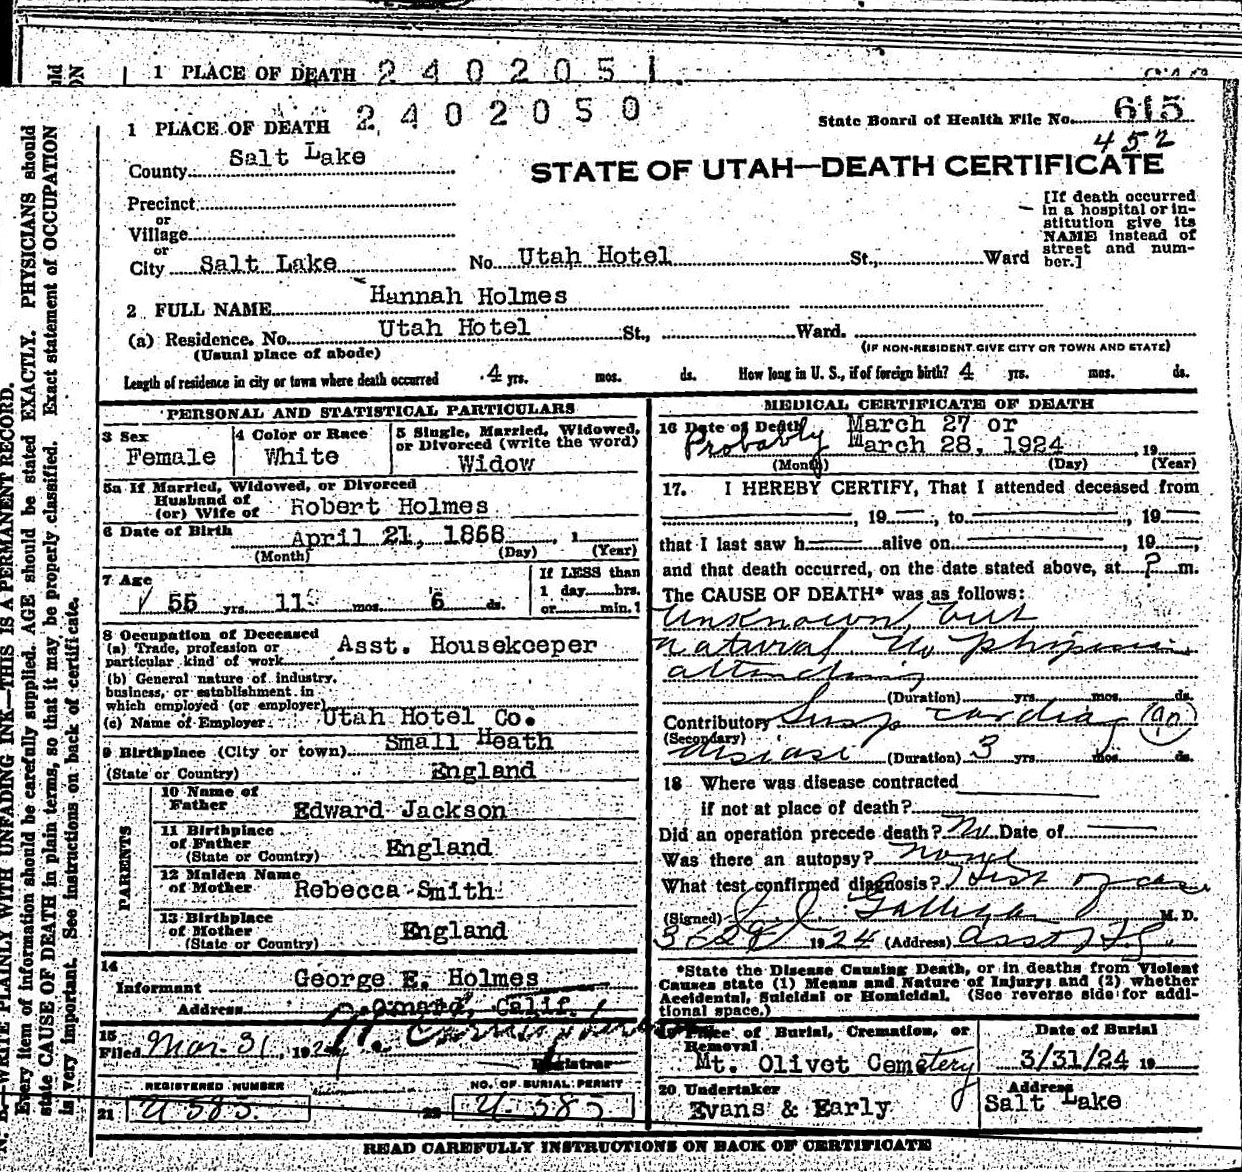 1 PLACE OF DEATH 2402051
1 PLACE OF DEATH 2402050
State Board of Health File No. 615
452
County Salt Lake
STATE OF UTAH—DEATH CERTIFICATE
Precinct
or
Village
or
City Salt Lake No. Utah Hotel St., Ward
[If death occurred
in a hospital or in-
stitution give its
NAME instead of
street and num-
ber.]
2 FULL NAME Hannah Holmes
(a) Residence. No. Utah Hotel St., Ward.
(Usual place of abode) (IF NON-RESIDENT GIVE CITY OR TOWN AND STATE)
Length of residence in city or town where death occurred 4 yrs. mos. ds. How long in U. S., if of foreign birth? 4 yrs. mos. ds.
PERSONAL AND STATISTICAL PARTICULARS
3 Sex
Female
4 Color or Race
White
5 Single, Married, Widowed,
or Divorced (write the word)
Widow
5a If Married, Widowed, or Divorced
Husband of
(or) Wife of Robert Holmes
6 Date of Birth April 21, 1868, 1
(Month) (Day) (Year)
7 Age
55 yrs. 11 mos. 6 ds.
If LESS than
1 day hrs.
or min.1
8 Occupation of Deceased
(a) Trade, profession or
particular kind of work Asst. Housekeeper
(b) General nature of industry,
business, or establishment in
which employed (or employer)
(c) Name of Employer Utah Hotel Co.
9 Birthplace (City or town) Small Heath
(State or Country) England
PARENTS
10 Name of
Father Edward Jackson
11 Birthplace
of Father England
(State or Country)
12 Maiden Name
of Mother Rebecca Smith
13 Birthplace
of Mother England
(State or Country)
14
Informant George E. Holmes
Address Calif.
15
Filed Mar. 31, 1924
Registrar
REGISTERED NUMBER
21 U 585.
NO. OF BURIAL PERMIT
22 U-585
MEDICAL CERTIFICATE OF DEATH
16 Date of Death March 27 or
Probably March 28, 1924, 19
(Month) (Day) (Year)
17. I HEREBY CERTIFY, That I attended deceased from
, 19 , to , 19
that I last saw h alive on , 19 ,
and that death occurred, on the date stated above, at ? m.
The CAUSE OF DEATH* was as follows:
Unknown, but
natural No physician
attending
(Duration) yrs. mos. ds.
Contributory Susp cardiac (90)
(Secondary)
disease (Duration) 3 yrs. mos. ds.
18 Where was disease contracted
if not at place of death?
Did an operation precede death? No Date of
Was there an autopsy?
What test confirmed diagnosis? Hist of case
(Signed) Galligan M. D.
3/28/ 1924 (Address)
*State the Disease Causing Death, or in deaths from Violent
Causes state (1) Means and Nature of Injury; and (2) whether
Accidental, Suicidal or Homicidal. (See reverse side for addi-
tional space.)
19 Place of Burial, Cremation, or
Removal
Mt. Olivet Cemetery
Date of Burial
3/31/24 19
20 Undertaker
Evans & Early
Address
Salt Lake
READ CAREFULLY INSTRUCTIONS ON BACK OF CERTIFICATE
N. B.—WRITE PLAINLY WITH UNFADING INK—THIS IS A PERMANENT RECORD.
Every item of information should be carefully supplied. AGE should be stated EXACTLY. PHYSICIANS should
state CAUSE OF DEATH in plain terms, so that it may be properly classified. Exact statement of OCCUPATION
is very important. See instructions on back of certificate.